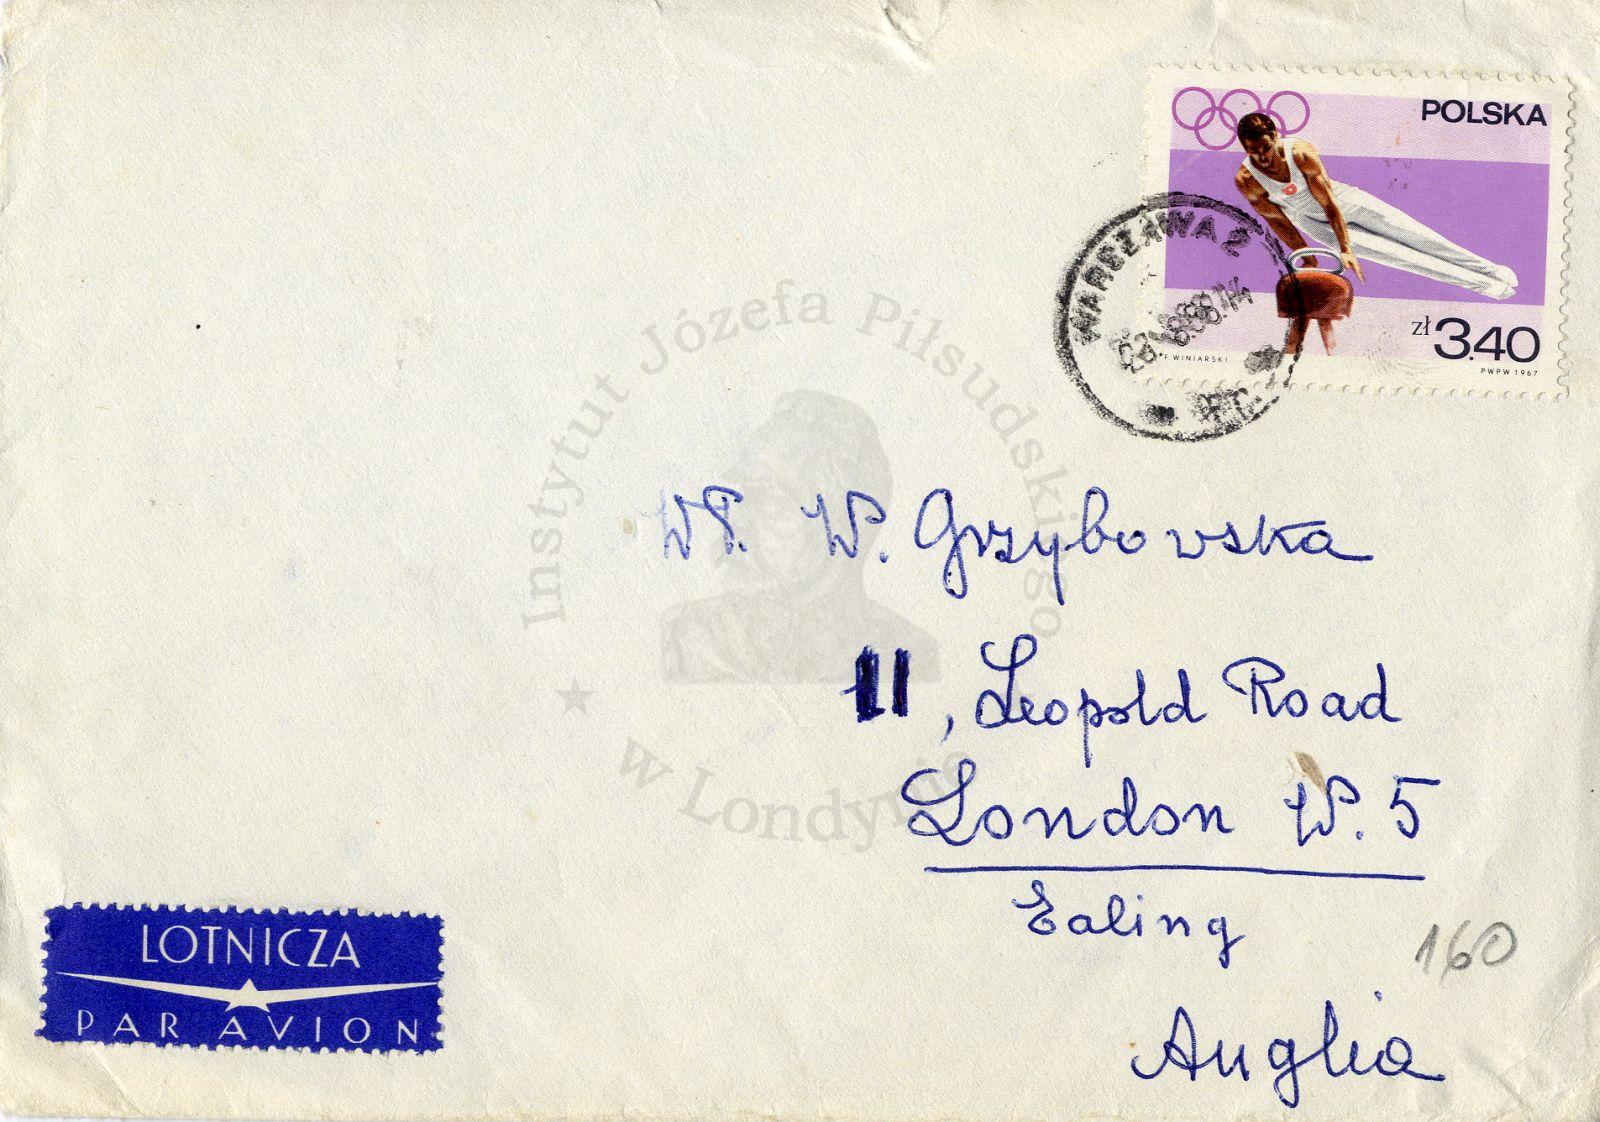 POLSKA
zł 3.40
F. WINIARSKI
PWPW 1967
WARSZAWA 2
Instytut Józefa Piłsudskiego
w Londynie
WP. W. Grzybowska
11, Leopold Road
London W. 5
Ealing
Anglia
160
LOTNICZA
PAR AVION